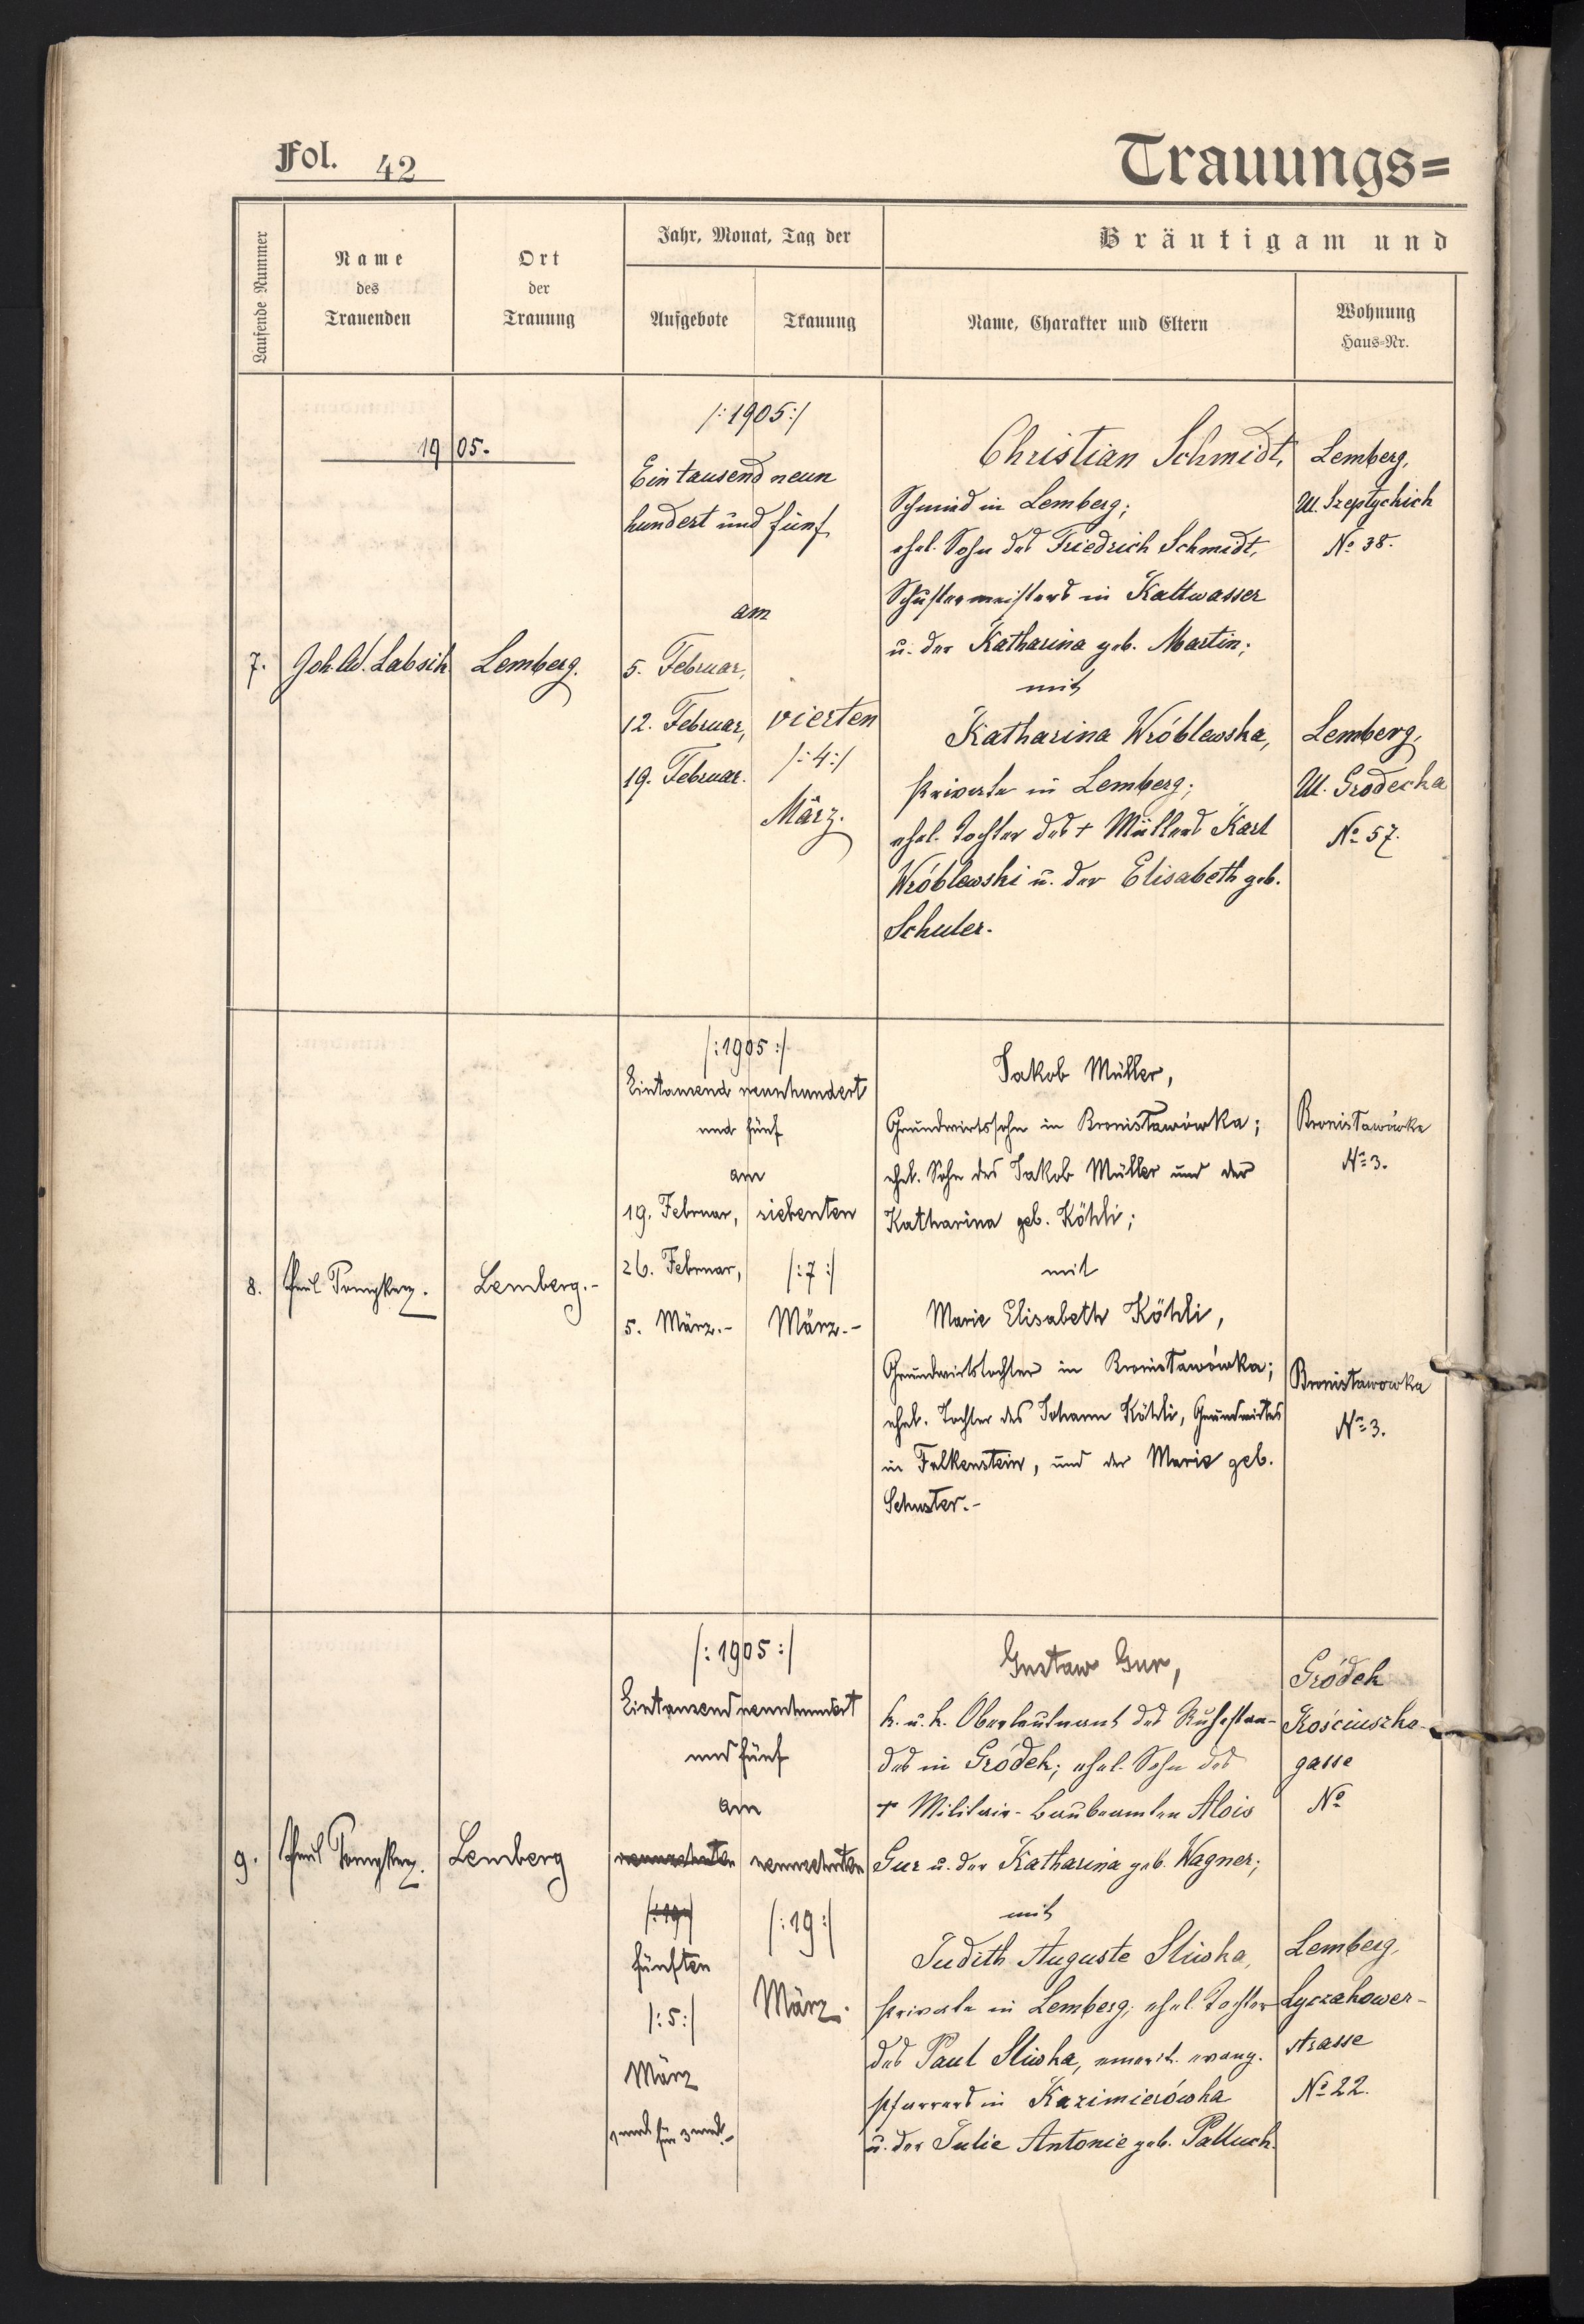 Fol. 42
Trauungs=
Laufende Nummer
Name
des
Trauenden
Ort
der
Trauung
Jahr, Monat, Tag der
Aufgebote
Trauung
Bräutigam und
Name, Charakter und Eltern
Wohnung
Haus=Nr.
1905.
7.
Labsik
Lemberg.
/:1905:/
Ein tausend neun
hundert und fünf
am
5. Februar,
12. Februar,
19. Februar.
vierten
/:4:/
März.
Christian Schmidt,
Schmied in Lemberg;
ehel. Sohn des Friedrich Schmidt,
Schustermeisters in Kaltwasser
u. der Katharina geb. Martin;
mit
Katharina Wróblewska,
Private in Lemberg;
ehel. Tochter des + Müllers Karl
Wróblewski u. der Elisabeth geb.
Schuler.
Lemberg,
Ul. Szeptychich
No 38.
Lemberg,
Ul. Grodecka
No 57.
8.
Paul
Lemberg.-
/:1905:/
Eintausend neunhundert
und fünf
am
19. Februar,
26. Februar,
5. März.-
siebenten
/:7:/
März.-
Jakob Müller,
Grundwirtssohn in Bronisławówka;
ehel. Sohn des Jakob Müller und der
Katharina geb. Köhli;
mit
Marie Elisabeth Köhli,
Grundwirtstochter in Bronisławówka;
ehel. Tochter des Johann Köhli, Grundwirtes
in Falkenstein, und der Marie geb.
Schuster.-
Bronisławówka
No 3.
Bronisławowka
No 3.
9.
Paul
Lemberg
/:1905:/
Eintausend neunhundert
und fünf
am
neunzehnten
/:19:/
fünften
/:5:/
März
neunzehnten
/:19:/
März.
Gustaw Gur,
k. u. k. Oberleutnant des Ruhestan-
des in Gródek; ehel. Sohn des
+ Militair-Baubeamten Alois
Gur u. der Katharina geb. Wagner;
mit
Judith Auguste Sliwka,
Private in Lemberg; ehel. Tochter
des Paul Sliwka, emerit. evang.
Pfarrers in Kazimierówka
u. der Julie Antonie geb. Palluch.
Gródek
Kościuszko-
gasse
No
Lemberg,
Lyczakower-
strasse
No 22.